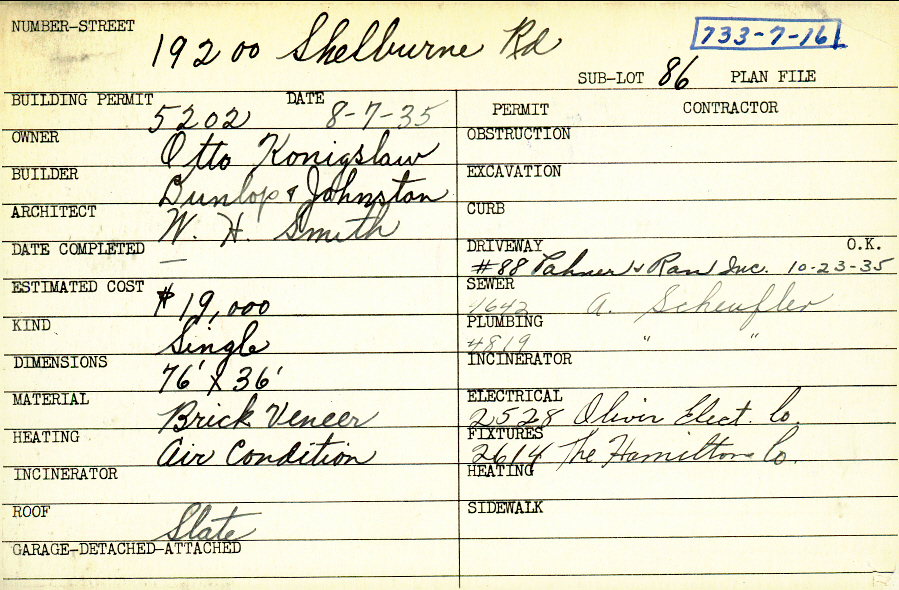 NUMBER-STREET 19200 Shelburne Rd 733-7-16
SUB-LOT 86 PLAN FILE
BUILDING PERMIT 5202 DATE 8-7-35
OWNER Otto Konigslaw
BUILDER Dunlop & Johnston
ARCHITECT W. H. Smith
DATE COMPLETED —
ESTIMATED COST $19,000
KIND Single
DIMENSIONS 76' x 36'
MATERIAL Brick Veneer
HEATING Air Condition
INCINERATOR
ROOF Slate
GARAGE-DETACHED-ATTACHED
PERMIT CONTRACTOR
OBSTRUCTION
EXCAVATION
CURB
DRIVEWAY O.K.
#88 & Inc. 10-23-35
SEWER 4642 A. Scheufler
PLUMBING 4819 " "
INCINERATOR
ELECTRICAL 2528 Oliver Elect. Co.
FIXTURES 2614 The Hamilton Co.
HEATING
SIDEWALK